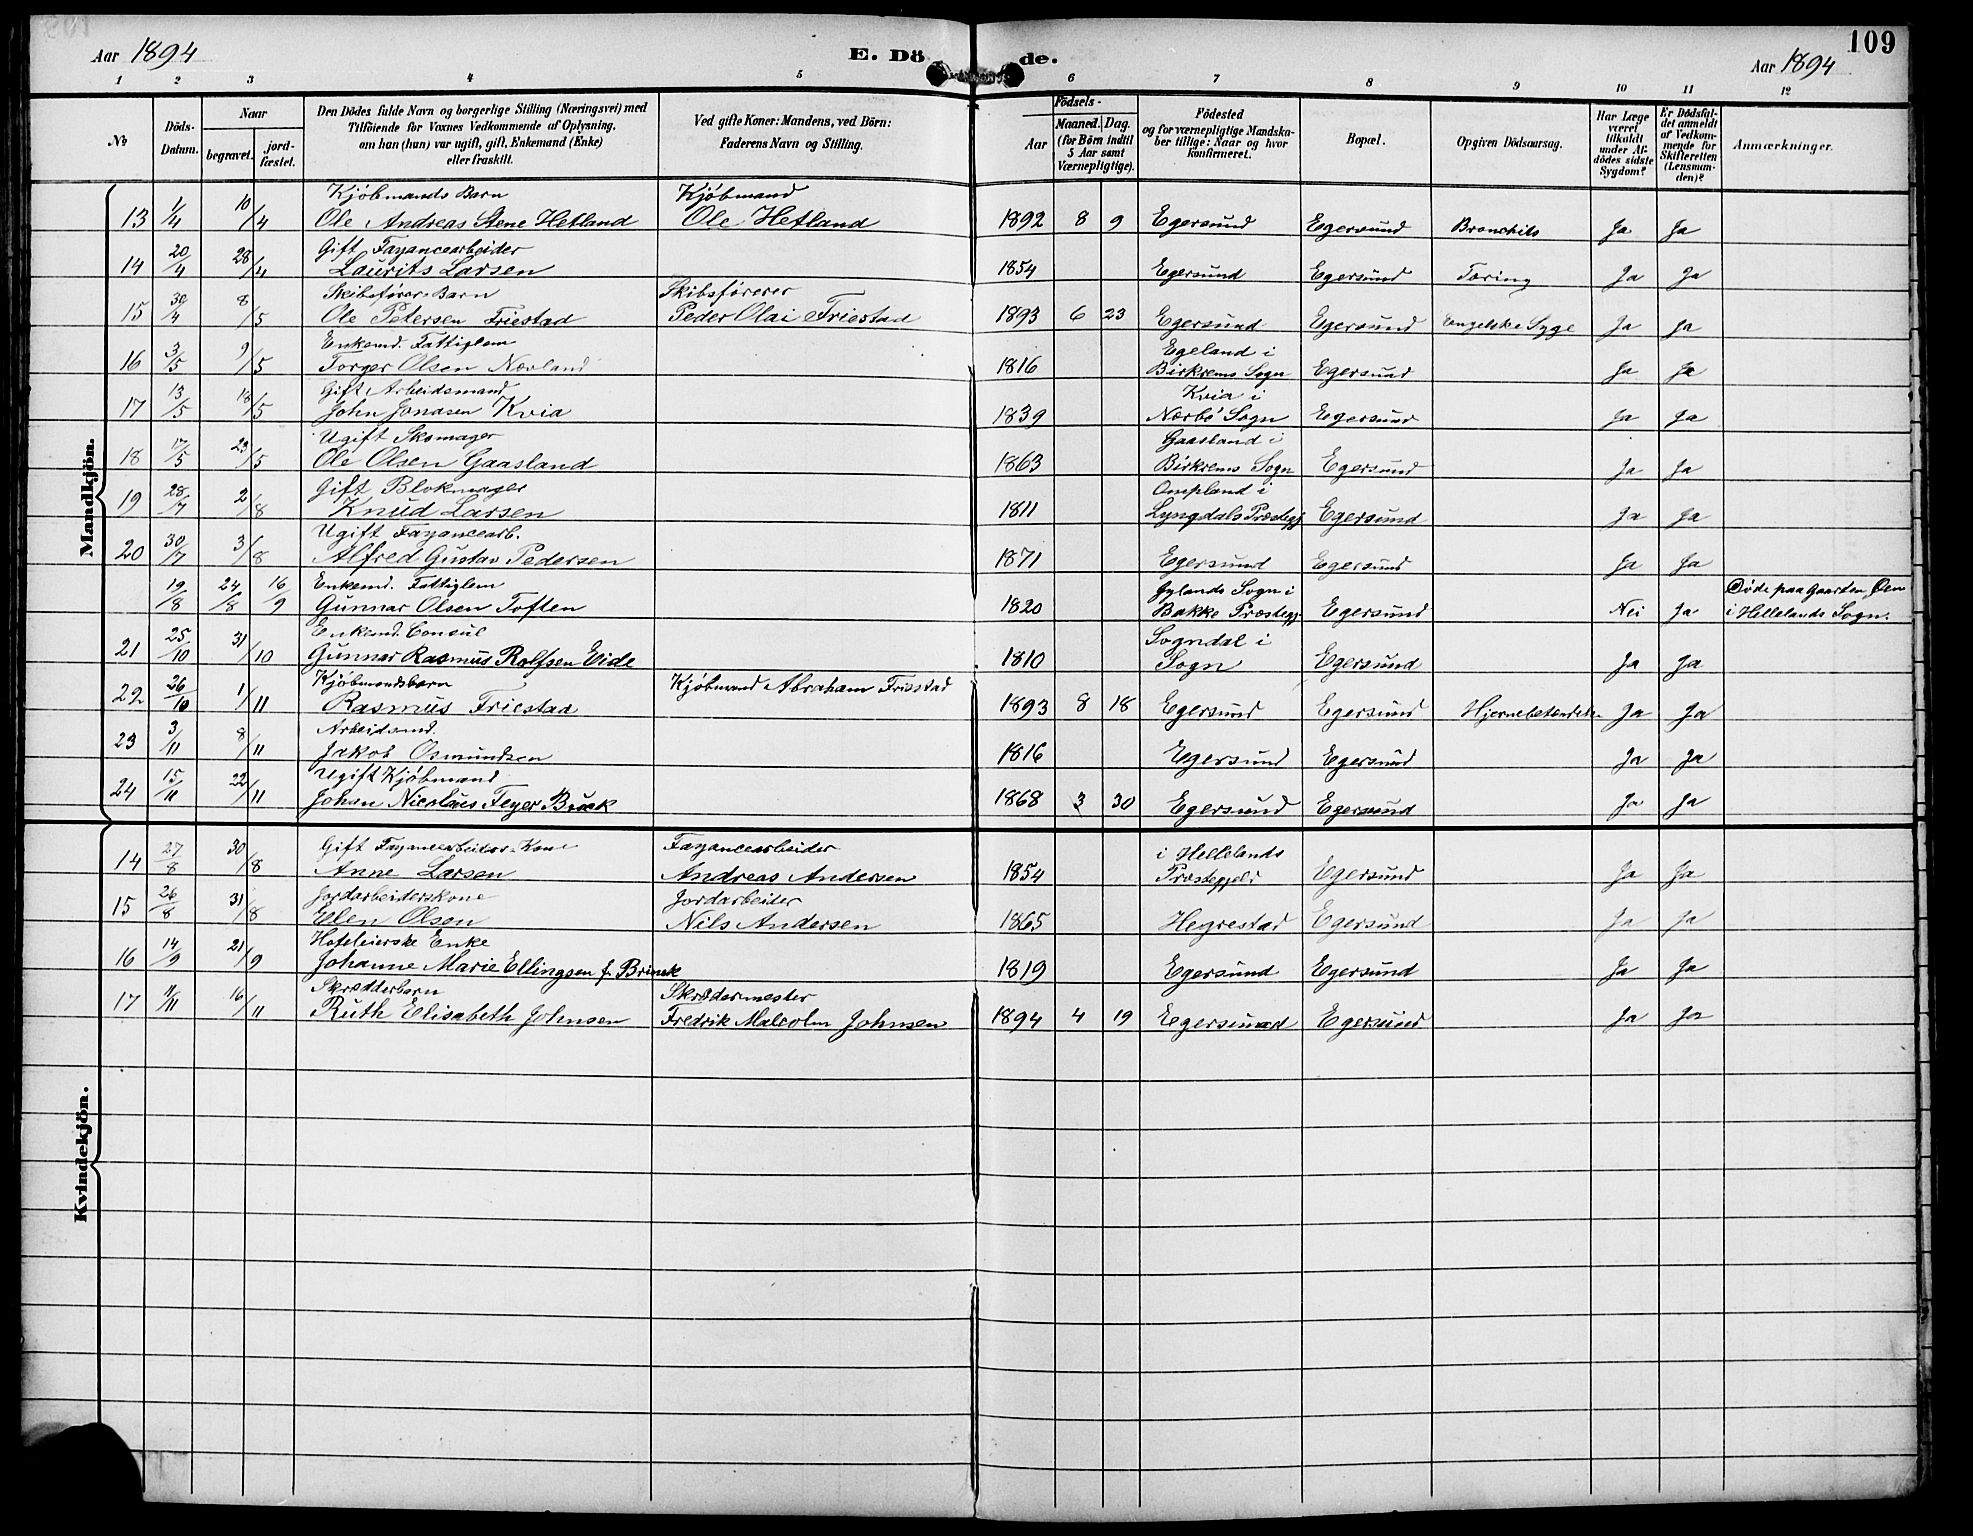 109
Aar 1894 E. Dö de. Aar 1894
1 2 3 4 5 6 7 8 9 10 11 12
No
Döds-Datum.
Naar
begravet.
jord-fæstet.
Den Dödes fulde Navn og borgerlige Stilling (Næringsvei) med
Tilföiende for Voxnes Vedkommende af Oplysning,
om han (hun) var ugift, gift, Enkemand (Enke)
eller fraskilt.
Ved gifte Koner: Mandens, ved Börn:
Faderens Navn og Stilling.
Födsels-
Aar
Maaned. Dag.
(for Börn indtil
5 Aar samt
Værnepligtige).
Födested
og for værnepligtige Mandska-
ber tillige: Naar og hvor
konfirmeret.
Bopæl.
Opgiven Dödsaarsag.
Har Læge
været
tilkaldt
under Af-
dödes sidste
Sygdom?
Er Dödsfal-
det anmeldt
af Vedkom-
mende for
Skifteretten
(Lensman-
den)?
Anmærkninger.
Mandkjön.
Kjøbmands Barn Kjøbmand
13 1/4 10/4 Ole Andreas Stene Hetland Ole Hetland 1892 8 9 Egersund Egersund Bronchits Ja Ja
Gift Fayancearbeider
14 20/4 28/4 Laurits Larsen 1854 Egersund Egersund Tæring Ja Ja
Skibsfører-Barn Skibsfører
15 30/4 8/5 Ole Petersen Friestad Peder Olai Friestad 1893 6 23 Egersund Egersund Engelske Syge Ja Ja
Enkemd. Fattiglem Egeland i
16 3/5 9/5 Torger Olsen Nævland 1816 Birkrems Sogn Egersund Ja Ja
Gift Arbeidsmand Kvia i
17 13/5 18/5 John Jonasen Kvia 1839 Nærbö Sogn Egersund Ja Ja
Ugift Skomager Gaasland i
18 17/5 23/5 Ole Olsen Gaasland 1863 Birkrems Sogn Egersund Ja Ja
Gift Blokmager Ompland i
19 28/7 2/8 Knud Larsen 1811 Lyngdals Præstegj Egersund Ja Ja
Ugift Fayancearb.
20 30/7 3/8 Alfred Gustav Pedersen 1871 Egersund Egersund Ja Ja
Enkemd. Fattiglem Gylands Sogn i Døde paa Gaarden Øen
19/8 24/8 16/9 Gunnar Olsen Toften 1820 Bakke Præstegj Egersund Nei Ja i Hellelands Sogn.
Enkemd. Consul Sogndal i
21 25/10 31/10 Gunnar Rasmus Rolfsen Eide 1810 Sogn Egersund Ja Ja
Kjøbmandsbarn
22 26/10 1/11 Rasmus Friestad Kjøbmand Abraham Friestad 1893 8 18 Egersund Egersund Ja Ja
Arbeidsmd.
23 3/11 8/11 Jakob Osmundsen 1816 Egersund Egersund Ja Ja
Ugift Kjøbmand
24 15/11 22/11 Johan Nicolaus Feyer Buck 1868 3 30 Egersund Egersund Ja Ja
Kvindekjön.
Gift Fayancearbeider-Kone Fayancearbeider i Hellelands
14 27/8 30/8 Anne Larsen Andreas Andersen 1854 Præstegjeld Egersund Ja Ja
Jordarbeiderskone Jordarbeider
15 26/8 31/8 Elen Olsen Nils Andersen 1865 Hegrestad Egersund Ja Ja
Hoteleierske Enke
16 14/9 21/9 Johanne Marie Ellingsen f. 1819 Egersund Egersund Ja Ja
Skrædderbarn Skrædermester
17 11/11 16/11 Ruth Elisabeth Johnsen Fredrik Malcolm Johnsen 1894 4 19 Egersund Egersund Ja Ja